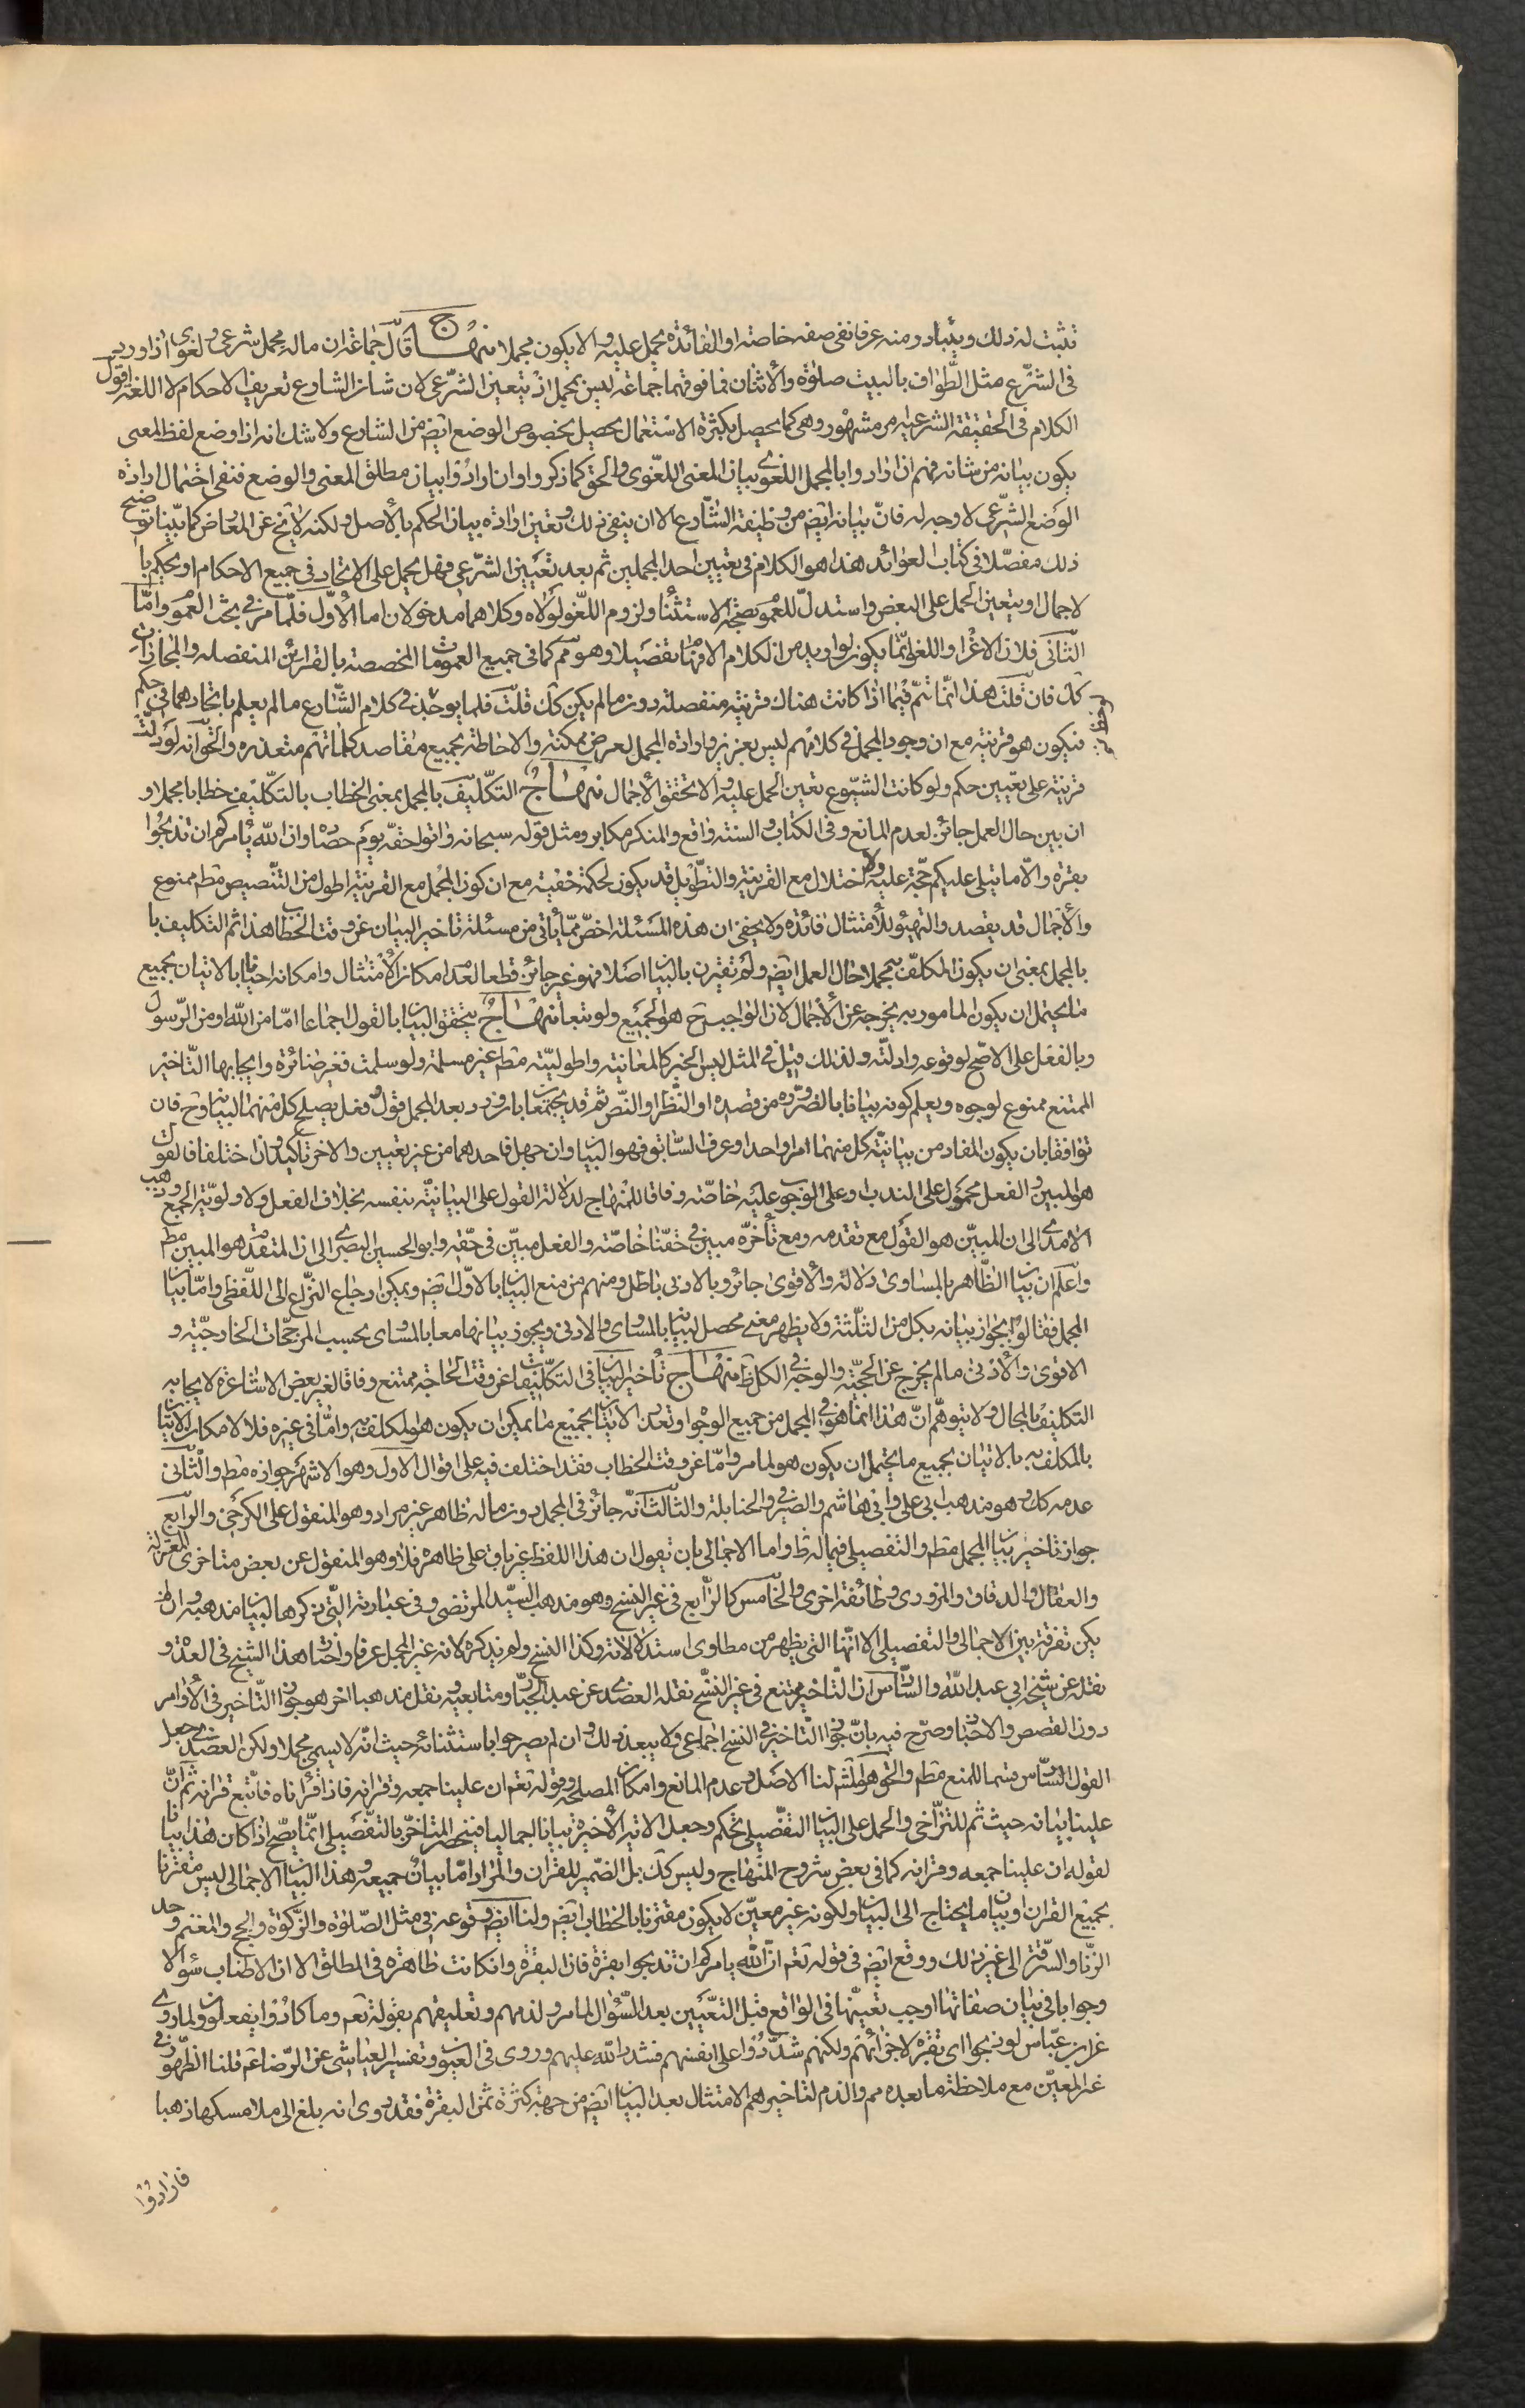 تثبت له ذلك ويتبادر منه عرفا نفى صفة خاصة او الفائدة يحمل عليه والا يكون مجملا منهاج قال جماعة ان ماله محمل شرعى ولغوى اذا ورد
فى الشرع مثل الطواف بالبيت صلوة والاثنان فما فوقهما جماعة ليس بمجمل اذ يتعين الشرعى لان شان الشارع تعريف الاحكام لا اللغة اقول
الكلام فى الحقيقة الشرعية مر مشهور وهى كما يحصل بكثرة الاستعمال يحصل بخصوص الوضع ايضا من الشارع ولا شك انه اذا وضع لفظ المعنى
يكون بيانه من شانه فهم ان ارادوا بالمجمل اللغوى بيان المعنى اللغوى والحق كما ذكروا وان ارادوا بيان مطلق المعنى والوضع فنفى احتمال ارادة
الوضع الشرعى لا وجه له فان بيانه ايضا من وظيفة الشارع الا ان ينفى ذلك وتعين ارادة بيان الحكم بالاصل ولكنه لا يخ عن المعارض كما بينا توضيح
ذلك مفصلا فى كتاب العوائد هذا هو الكلام فى تعيين احد المجملين ثم بعد تعيين الشرعى فهل يحمل على الاتحاد فى جميع الاحكام او يحكم با
لاجمال او يتعين الحمل على البعض واستدل للعموم بصحة الاستثناء ولزوم اللغو لولاه وكلاهما مدخولان اما الاول فلما مر فى بحث العموم واما
الثانى فلان الاغراء واللغو انما يكون لو اريد من الكلام الافهام تفصيلا وهو مم كما فى جميع العمومات المخصصة بالقرائن المنفصلة والمجازات
كك فان قلت هذا انما تم فيما اذا كانت هناك قرينة منفصلة دون ما لم يكن كك قلت قلما يوجد فى كلام الشارع ما لم يعلم باتحادهما فى حكم
فيكون هو قرينة مع ان وجود المجمل فى كلامهم ليس بعزيز وارادة المجمل لعرض ممكنة والاحاطة بجميع مقاصد كلماتهم متعذرة والحق انه لو دلت
قرينة على تعيين حكم ولو كانت الشيوع تعين الحمل عليه والا تحقق الاجمال منهاج التكليف بالمجمل بمعنى الخطاب بالتكليف خطابا مجملا و
ان بين حال العمل جائز لعدم المانع وفى الكتاب والسنة واقع والمنكر مكابر ومثل قوله سبحانه واتوا حقه يوم حصاده وان الله يأمركم ان تذبحوا
بقرة والا ما يتلى عليكم حجة عليه ولا اختلال مع القرينة والتطويل قد يكون لحكمة خفية مع ان كون المجمل مع القرينة اطول من التنصيص مطم ممنوع
والاجمال قد يقصد والتهيؤ للامتثال فائدة ولا يخفى ان هذه المسئلة اخص مما يأتى من مسئلة تاخير البيان عن وقت الخطاب هذا ثم التكليف با
بالمجمل بمعنى ان يكون المكلف به مجملا حال العمل ايضا ولم تقترن بالبيان اصلا فهو غير جائز قطعا لعدم امكان الامتثال وامكانه احيانا بالاتيان بجميع
ما يحتمل ان يكون المامور به يخرجه عن الاجمال لان الواجب ح هو الجميع ولو تبعا منهاج يتحقق البيان بالقول اجماعا اما من الله او من الرسول
وبالفعل على الاصح لوقوعه وادلته ولذلك قيل فى المثل ليس الخبر كالمعاينة واطوليته مطم غير مسلمة ولو سلمت فغير ضائرة وايجابها التاخير
الممتنع ممنوع لوجوه ويعلم كونه بيانا بالضرورة من قصده او النظر او النص ثم قد يجتمعان بان ورد بعد المجمل قول وفعل يصلح كل منهما للبيان وح فان
توافقا بان يكون المفاد من بيانية كل منهما امرا واحدا وعرف السابق فهو البيان وان جهل فاحدهما من غير تعيين والاخر تاكيد وان اختلفا فالقول
هو المبين والفعل محمول على الندب او على الوجوب عليه خاصة وفاقا للمنهاج لدلالة القول على البيانية بنفسه بخلاف الفعل ولاولوية الجمع وذهب
الامدى الى ان المبين هو القول مع تقدمه ومع تأخره مبين فى حقنا خاصة والفعل مبين فى حقه وابو الحسين البصرى الى ان المتقدم هو المبين مطم
واعلم ان بيان الظاهر بالمساوى دلالة والاقوى جائز وبالادنى باطل ومنهم من منع البيان بالاول ايضا ويمكن ارجاع النزاع الى اللفظى واما بيان
المجمل فقالوا بجواز بيانه بكل من الثلثة ولا يظهر معنى محصل لبيانه بالمساوى والادنى ويجوز بيانها معا بالمساوى بحسب المرجحات الخارجية و
الاقوى والادنى ما لم يخرج عن الحجية والوجه فى الكل ظ منهاج تأخير البيان فى التكليفات عن وقت الحاجة ممتنع وفاقا لغير بعض الاشاعرة لايجابه
التكليف بالمحال ولا يتوهم ان هذا انما هو فى المجمل من جميع الوجوه او تعذر الاتيان بجميع ما يمكن ان يكون هو المكلف به واما فى غيره فلا لامكان الاتيان
بالمكلف به بالاتيان بجميع ما يحتمل ان يكون هو لما مر واما عن وقت الخطاب فقد اختلف فيه على اقوال الاول وهو الاشهر جوازه مطم والثانى
عدمه كك وهو مذهب ابى على وابى هاشم والصيرفى والحنابلة والثالث انه جائز فى المجمل دون ماله ظاهر غير مراد وهو المنقول على الكرخى والرابع
جواز تاخير بيان المجمل مطم والتفصيلى فيما له ظ واما الاجمالى بان تقول ان هذا اللفظ غير باق على ظاهره فلا وهو المنقول عن بعض متاخرى المعتزلة
والقفال والدقاق والمزورى وطائفة اخرى والخامس كالرابع فى غير النسخ وهو مذهب السيد المرتضى وفى عبارته التى ذكرها لبيان مذهبه وان لم
يكن تفرقة بين الاجمالى والتفصيلى الا انها التى يظهر من مطاوى استدلالاته وكذا النسخ ولم يذكره لانه غير المجمل عرفا واختار هذا الشيخ فى العدة و
نقله عن شيخه ابى عبد الله والسادس ان التاخير ممتنع فى غير النسخ نقله العضدى عن عبد الجبار ومتابعيه ونقل مذهبا اخر هو جواز التاخير فى الاوامر
دون القصص والاخبار وصرح فيه بان جواز التاخير فى النسخ اجماعى ولا يبعد ذلك وان لم يصرحوا باستثنائه حيث انه لا يسمى مجملا ولكن العضدى جعل
القول السادس قسما للمنع مطم والحق هو المشهور لنا الاصل وعدم المانع وامكان المصلحة وقوله تعم ان علينا جمعه وقرانه فاذا قرأناه فاتبع قرانه ثم ان
علينا بيانه حيث ثم للتراخى والحمل على البيان التفصيلى تحكم وجعل الاية الاخيرة بيانا اجماليا فينحصر المتاخر بالتفصيلى انما يصح اذا كان هذا بيانا
لقوله ان علينا جمعه وقرانه كما فى بعض شروح المنهاج وليس كك بل الضمير للقران والمراد اما بيان جميعه وهذا البيان الاجمالى ليس مقترنا
بجميع القران او بيان ما يحتاج الى البيان ولكونه غير معين لا يكون مقترنا بالخطاب ايضا ولنا ايضا وقوعه فى مثل الصلوة والزكوة والحج والمغنم وحد
الزنا والسرقة الى غير ذلك ووقع ايضا فى قوله تعم ان الله يامركم ان تذبحوا بقرة فان البقرة وان كانت ظاهرة فى المطلق الا ان الاطناب سؤالا
وجوابا فى بيان صفاتها اوجب تعيينها فى الواقع قبل التعيين بعد السؤال لما مر ولذمهم وتعليقهم بقوله تعم وما كادوا يفعلون ولما روى
عن ابن عباس لو ذبحوا اى بقرة لاجزأتهم ولكنهم شددوا على انفسهم فشدد الله عليهم وروى فى العيون وتفسير العياشى عن الرضا عم قلنا الظهور فى
غير المعين مع ملاحظة ما بعده مم والذم لتاخيرهم الامتثال بعد البيان ايضا من جهة كثرة ثمن البقرة فقد روى انه بلغ الى ملأ مسكها ذهبا
فارادوا